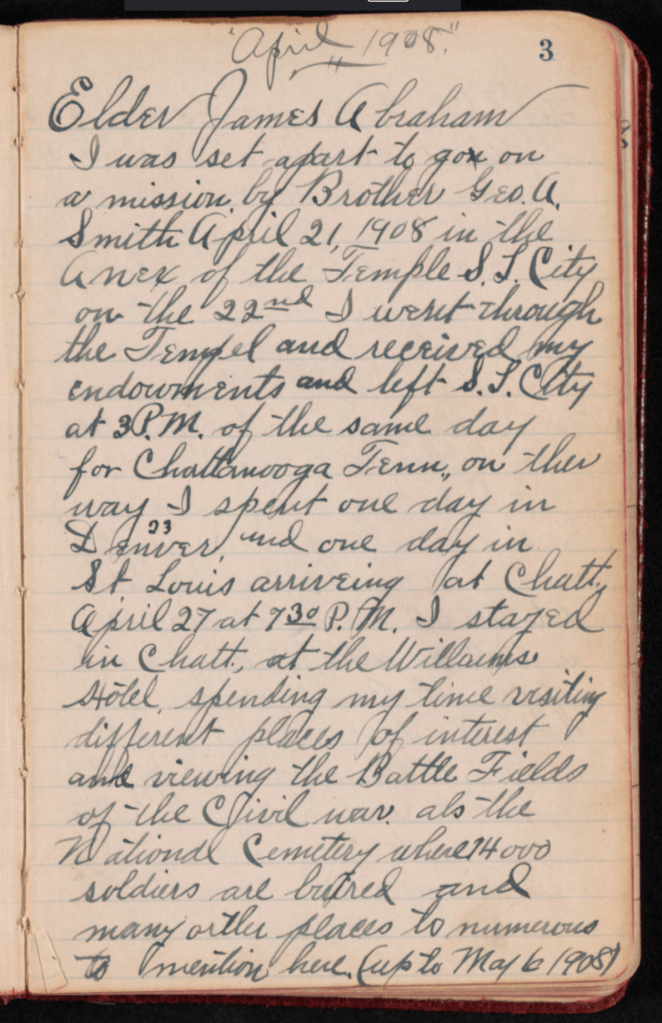 "April 1908."
3
Elder James Abraham
I was set apart to go on
a mission by Brother Geo. A.
Smith April 21, 1908 in the
Anex of the Temple S. L. City
on the 22nd I went through
the Tempel and received my
endowments and left S. L. City
at 3 P.M. of the same day
for Chattanooga Tenn., on ther
way I spent one day in
Denver, 23 and one day in
St Louis arriveing at Chatt,
April 27 at 730 P. M. I stayed
in Chatt, at the Willaims
Hotel, spending my time visiting
different places of interest
and viewing the Battle Fields
of the Civil war. als the
National Cemetery where 14000
soldiers are buired and
many orther places to numerous
to mention here. (up to May 6 1908)